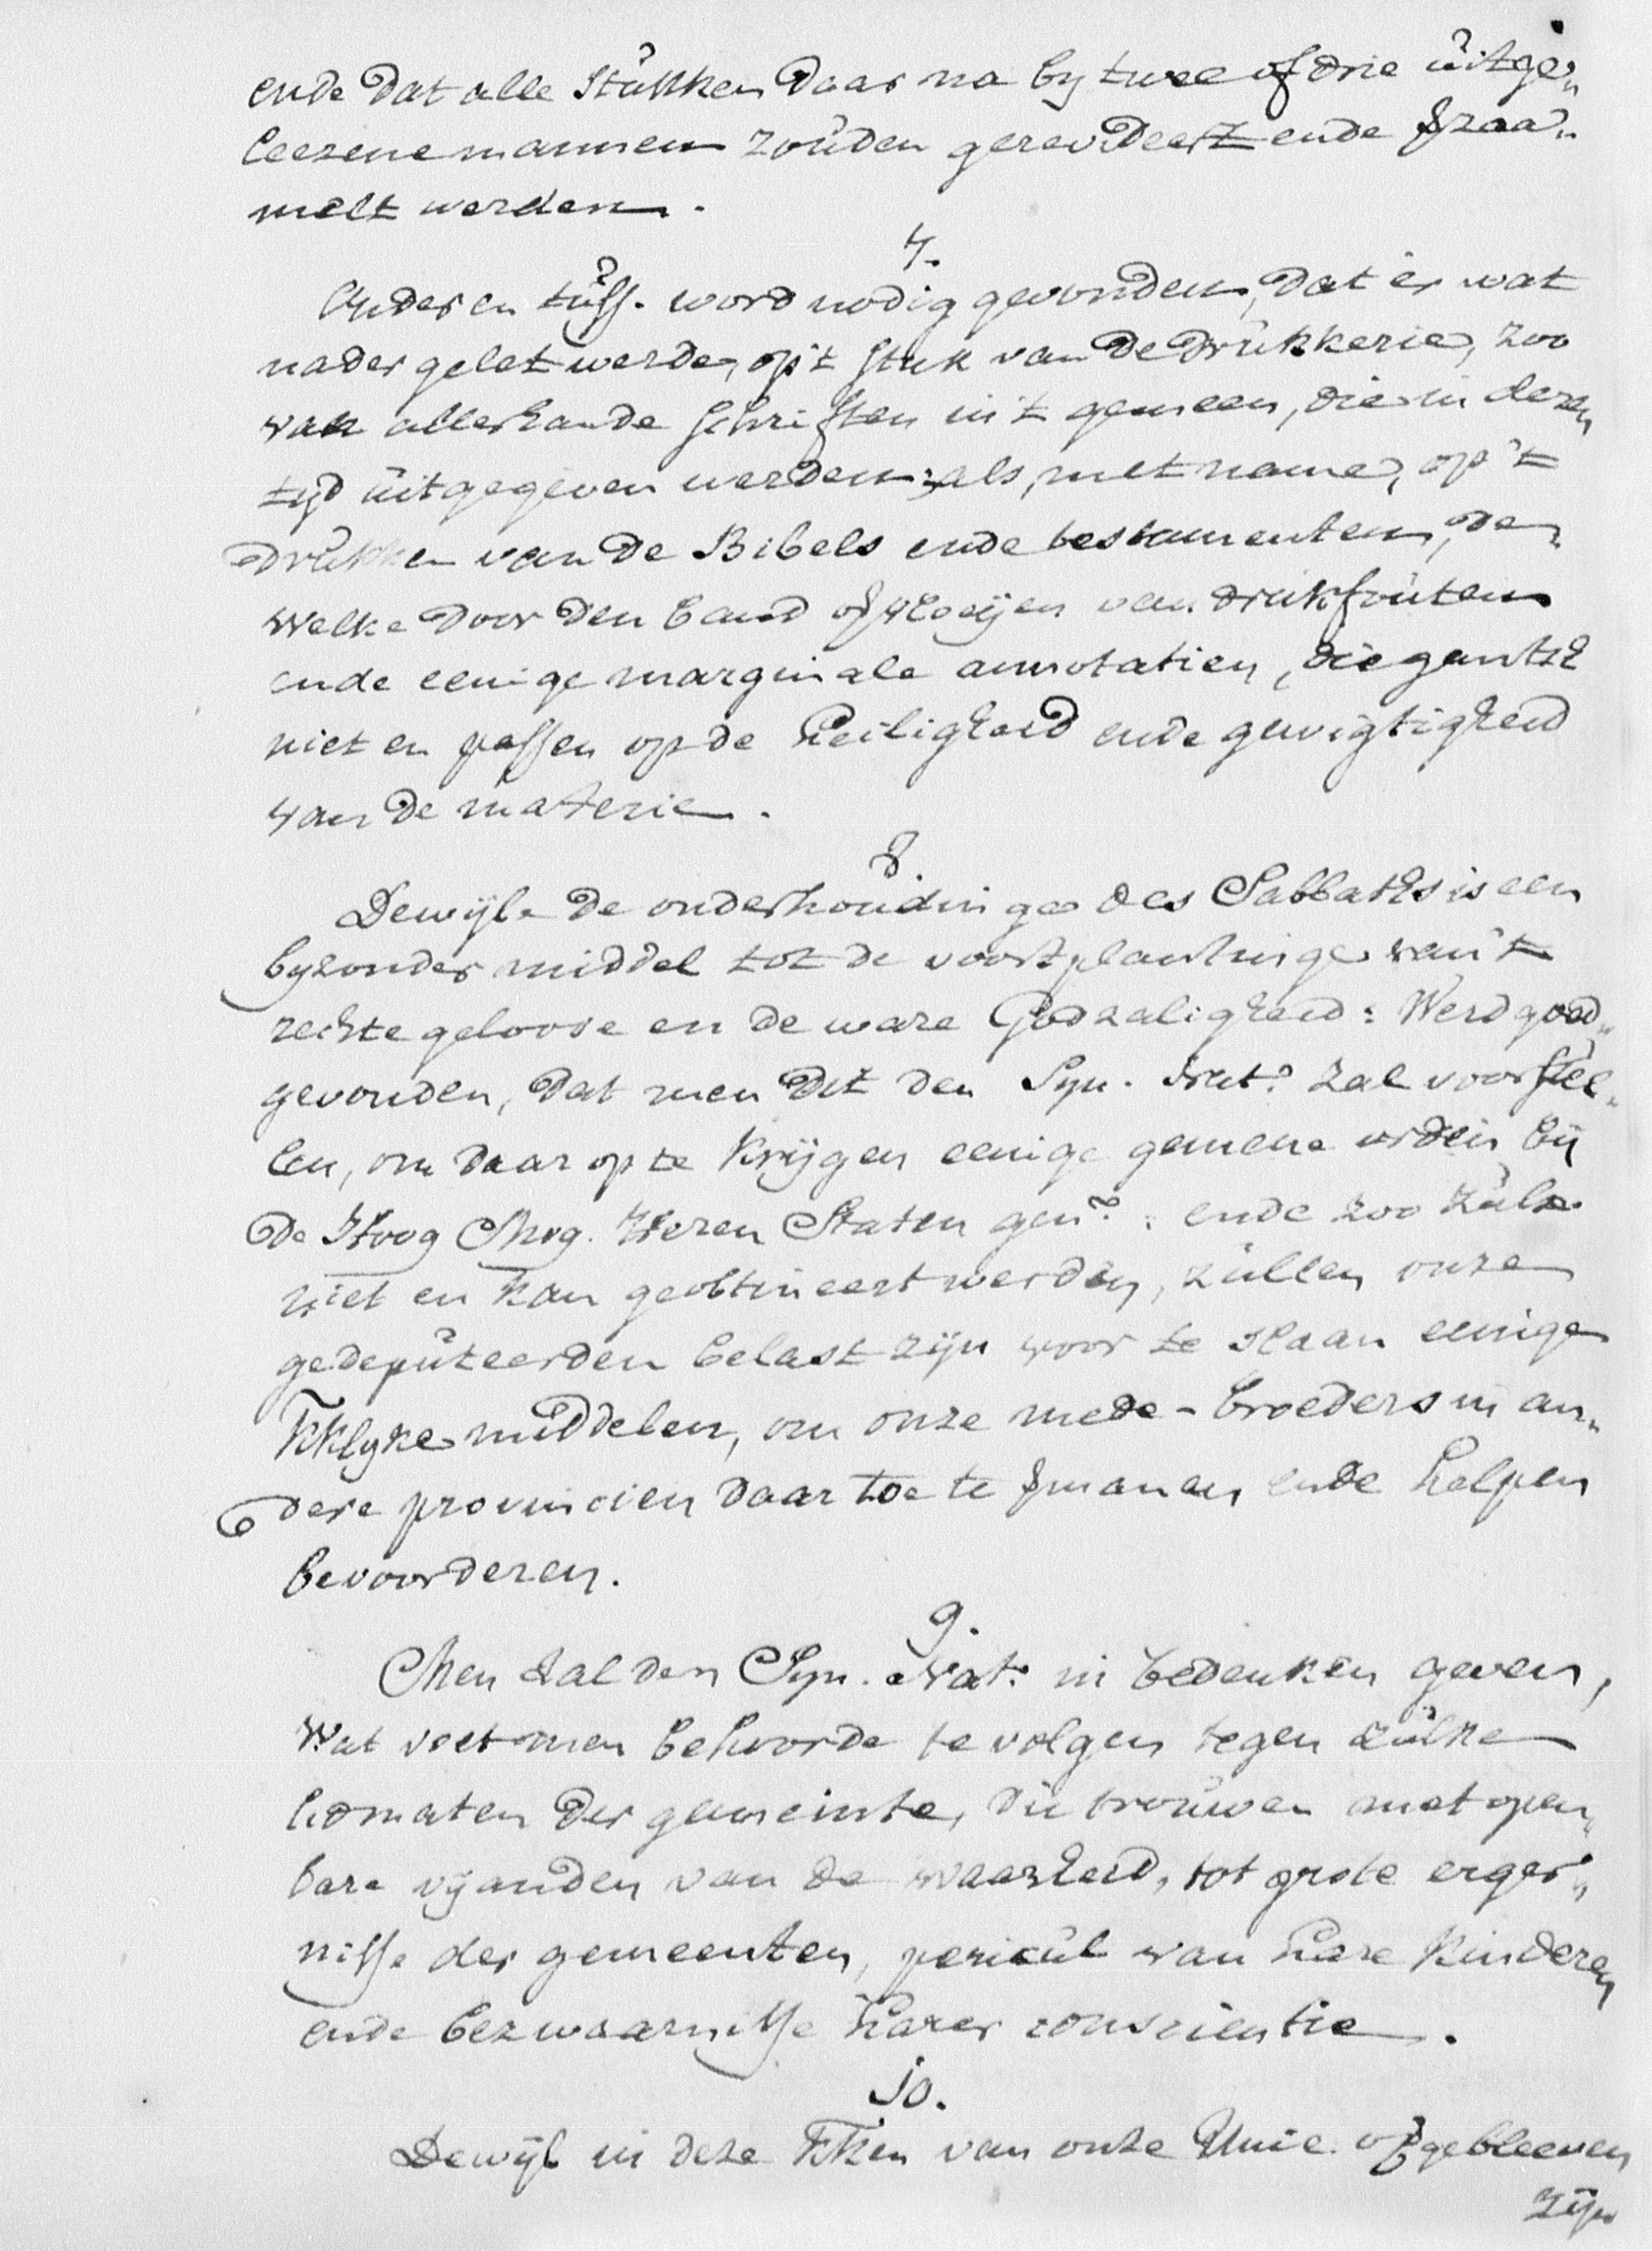 ende dat alle Stukken daar na by twee of drie uitge„
leezene mannen zouden gerevideert ende ꝟzaa„
melt werden.
7.
Onder en tuss. word nodig gevonden, dat er wat
nader gelet werde, op't stuk van de drukkerie, zoo
van allerhande schriften in't gemeen, die in dezen
tyd uitgegeven werden: als, met name, op't
drukken van de Bibels ende testamenten, de„
welke door den band overvloeijen van drukfouten
ende eenige marginale annotatien, die gantsch
niet en passen op de heiligheid ende gewigtigheid
van de materie.
8.
Dewijle de onderhoudinge des Sabbaths is een
byzonder middel tot de voortplantinge van't
rechte geloove en de ware Godzaligheid: Werd goed„
gevonden, dat men dit den Syn. Nat: zal voorstel„
len, om daar op te krijgen eenige gemene ordein bij
de Hoog Mog. Heren Staten gen: ende zoo zulx
niet en kan geobtineert werden, zullen onze
gedeputeerden belast zijn voor te slaan eenige
kklyke middelen, om onze mede-broeders in an„
dere provincien daar toe te ꝟmanen ende helpen
bevoorderen.
9.
Men zal den Syn. Nat: in bedenken geven,
Wat voet men behoorde te volgen tegen zulke
lidmaten der gemeinte, die trouwen met open„
bare vijanden van de waarheid, tot grote erger„
nisse der gemeenten, pericul van hare kinderen
ende bezwaarnisse harer conscientie.
10.
Dewijl in deze kken van onze Unie gebleeven
zijn